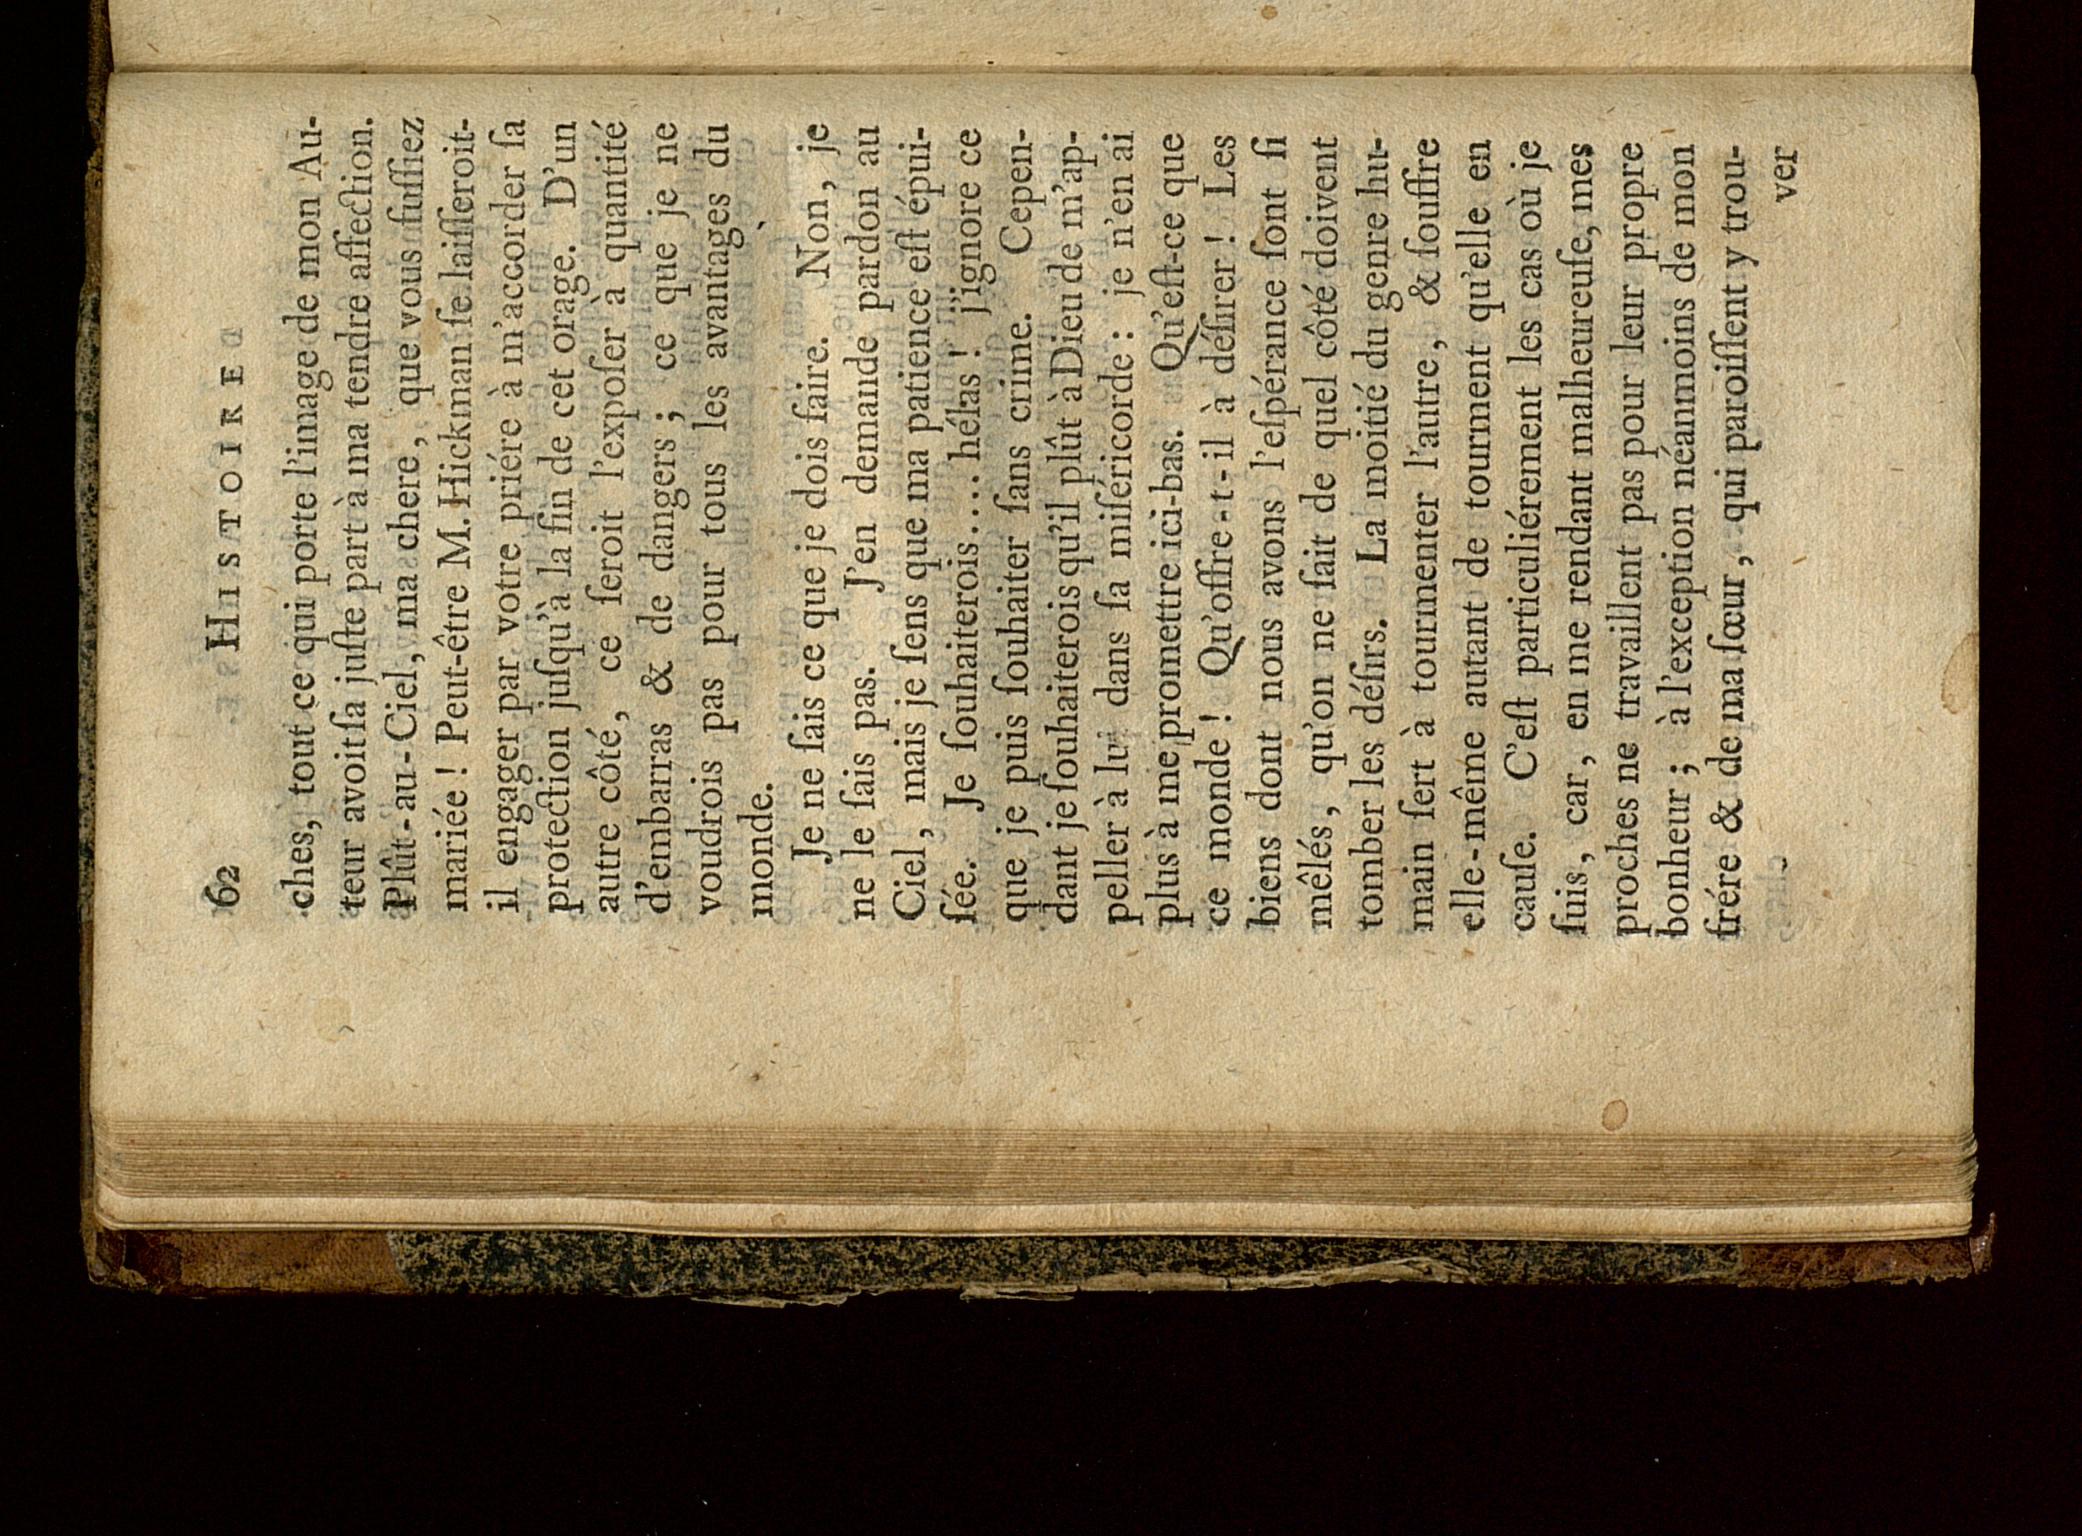 62 HISTOIRE
ches, tout ce qui porte l'image de mon Au-
teur avoit ſa juſte part à ma tendre affection.
Plût-au-Ciel, ma chere, que vous fuſſiez
mariée! Peut-être M. Hickman ſe laiſſeroit-
il engager par votre priére à m'accorder ſa
protection juſqu'à la fin de cet orage. D'un
autre côté, ce ſeroit l'expoſer à quantité
d'embarras & de dangers; ce que je ne
voudrois pas pour tous les avantages du
monde.
Je ne ſais ce que je dois faire. Non, je
ne le ſais pas. J'en demande pardon au
Ciel, mais je ſens que ma patience eſt épui-
ſée. Je ſouhaiterois.... hélas! j'ignore ce
que je puis ſouhaiter ſans crime. Cepen-
dant je ſouhaiterois qu'il plût à Dieu de m'ap-
peller à lui dans ſa miſéricorde: je n'en ai
plus à me promettre ici-bas. Qu'eſt-ce que
ce monde! Qu'offre-t-il à déſirer! Les
biens dont nous avons l'eſpérance ſont ſi
mêlés, qu'on ne ſait de quel côté doivent
tomber les déſirs. La moitié du genre hu-
main ſert à tourmenter l'autre, & ſouffre
elle-même autant de tourment qu'elle en
cauſe. C'eſt particuliérement les cas où je
ſuis, car, en me rendant malheureuſe, mes
proches ne travaillent pas pour leur propre
bonheur; à l'exception néanmoins de mon
frére & de ma ſœur, qui paroiſſent y trou-
ver